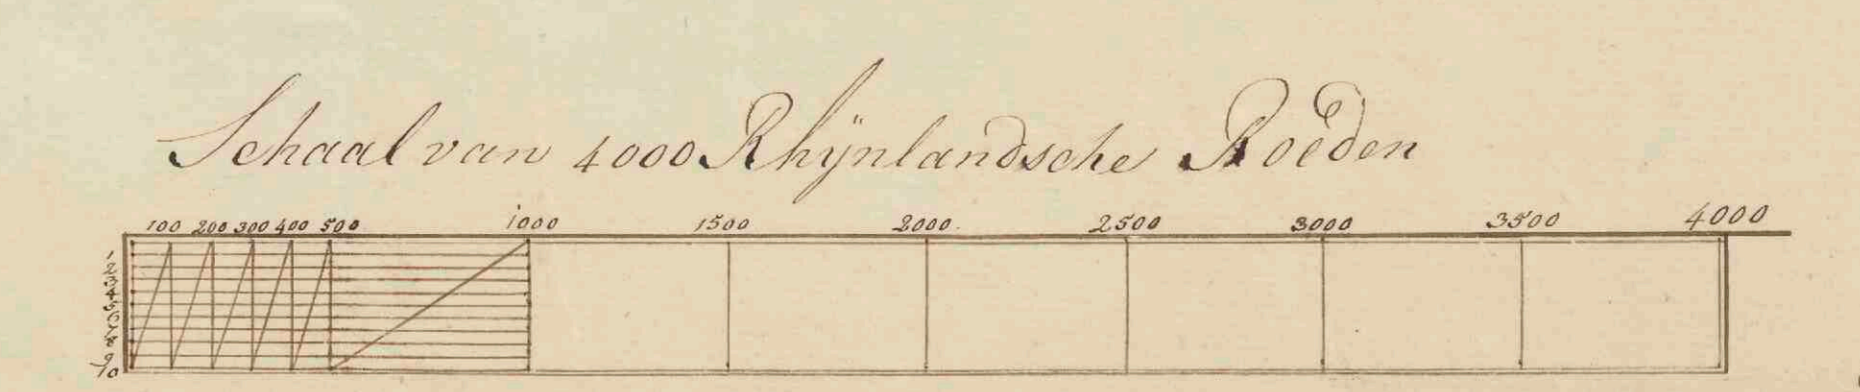 Schaal van 4000 Rhÿnlandsche Roeden
100 200 300 400 500 1000 1500 2000. 2500 3000 3500 4000
1
2
3
4
5
6
7
8
9
10